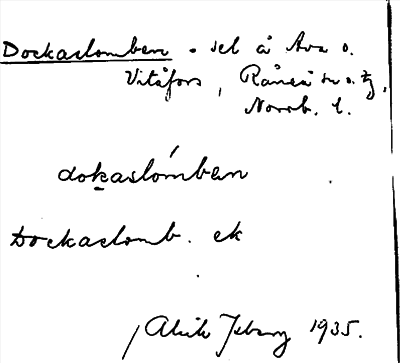 Dockaslomben - sel å Ava o.
Vitåfors, Råneå sn o. tg,
Norrb. l.
dokaslómben
Dockaslomb. ek
1935.